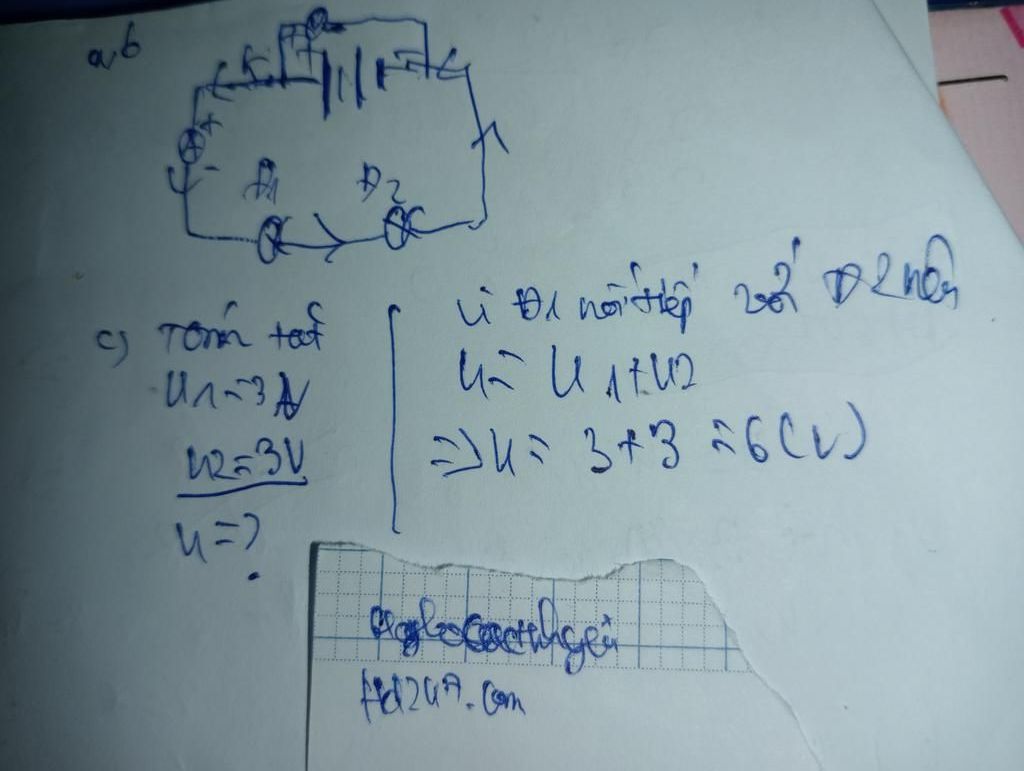 a, b
K
+ -
A + -
Đ1 Đ2
c) Tóm tắt
U1 = 3V
U2 = 3V
U = ?
Vì Đ1 nối tiếp với Đ2 nên
U = U1 + U2
=> U = 3 + 3 = 6 (V)
Hd247.com